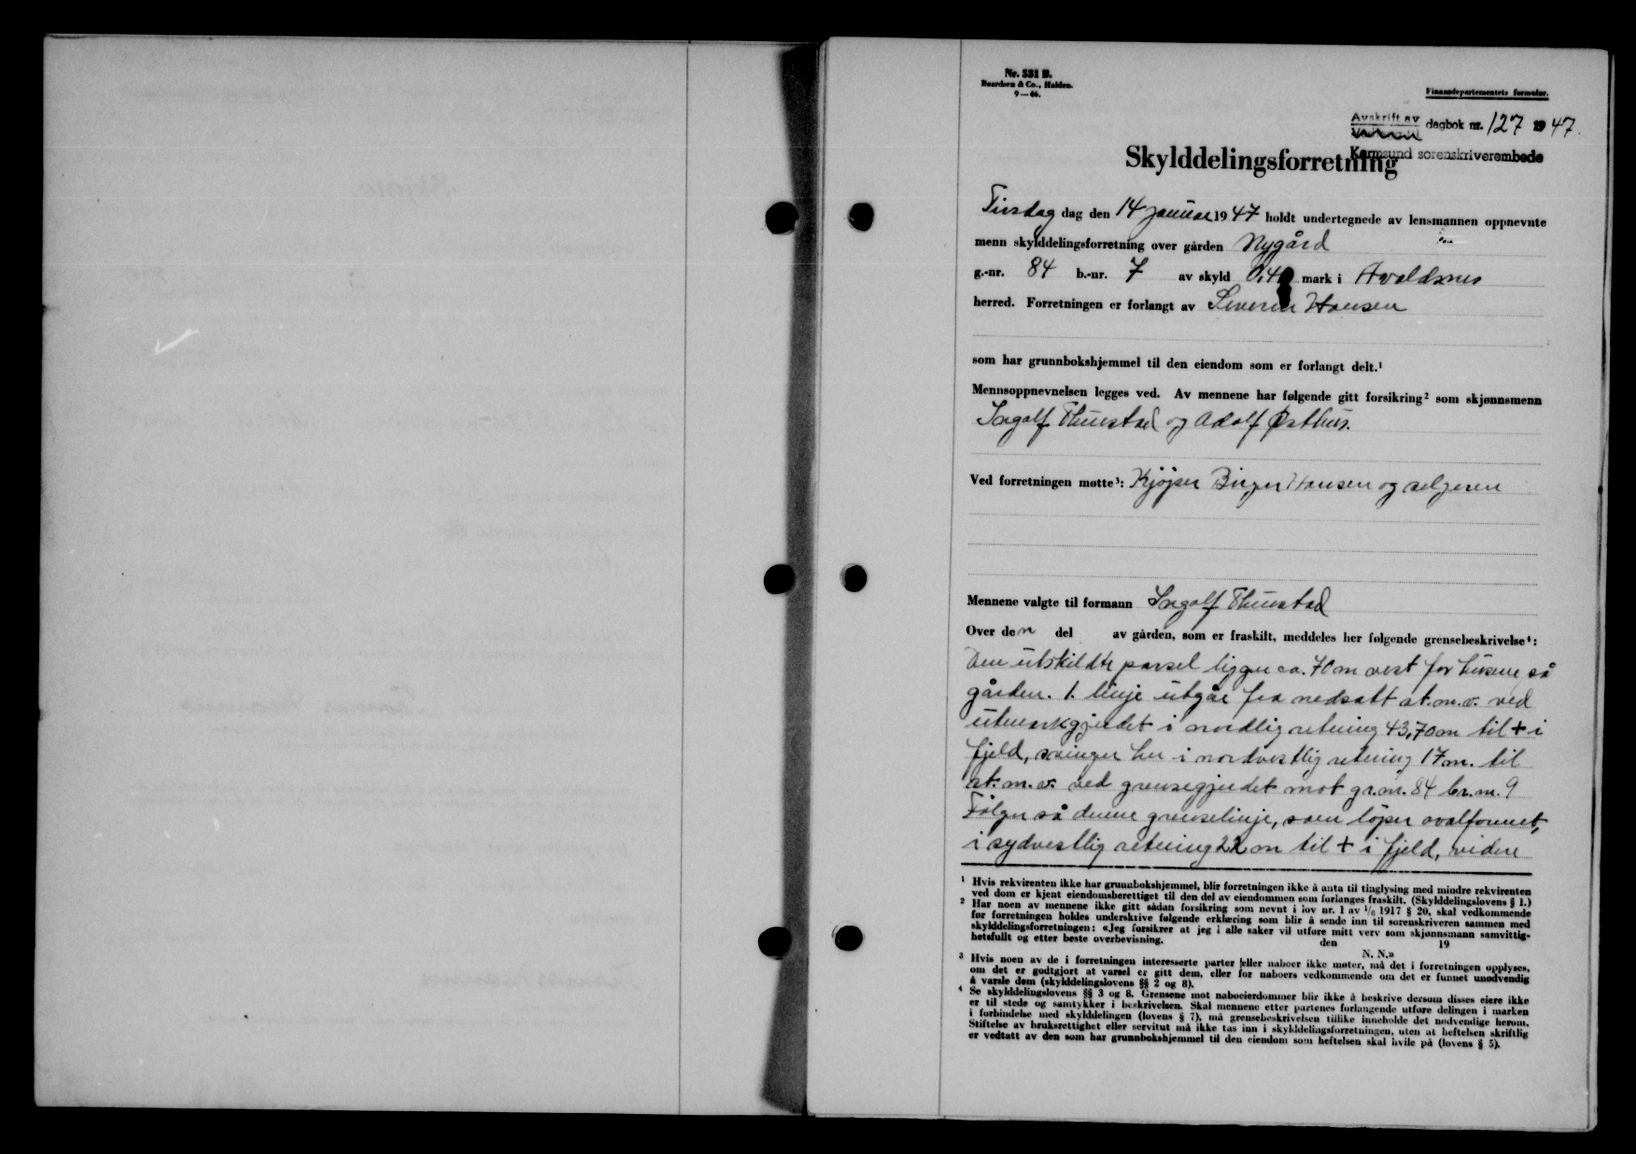 Nr. 531 B.
Baardsen & Co., Halden.
9—46.
Finansdepartementets formular.
Avskrift av
dagbok nr. 127 1947.
Karmsund sorenskriverembede
Skylddelingsforretning
Tirsdag dag den 14 januar 1947 holdt undertegnede av lensmannen oppnevnte
menn skylddelingsforretning over gården Nygård
g.-nr. 84 b.-nr. 7 av skyld 0,40 mark i Avaldsnes
herred. Forretningen er forlangt av Severin Hansen
som har grunnbokshjemmel til den eiendom som er forlangt delt.¹
Mennsoppnevnelsen legges ved. Av mennene har følgende gitt forsikring² som skjønnsmenn
Ingolf Thuestad og Adolf Østhus.
Ved forretningen møtte³: Kjøper Birger Hansen og selgeren
Mennene valgte til formann Ingolf Thuestad
Over den del av gården, som er fraskilt, meddeles her følgende grensebeskrivelse⁴:
Den utskildte parsel ligger ca. 70 m vest for husene på
gården. 1. linje utgår fra nedsatt st.m.v. ved
utmarkgjerdet i nordlig retning 43,70 m til + i
fjeld, svinger her i nordvestlig retning 17 m. til
st.m.v. ved grensegjerdet mot gr.nr. 84 br.nr. 9
Følger så denne grenselinje, som løper ovalformet,
i sydvestlig retning 22 m til + i fjeld, videre
¹ Hvis rekvirenten ikke har grunnbokshjemmel, blir forretningen ikke å anta til tinglysing med mindre rekvirenten
ved dom er kjent eiendomsberettiget til den del av eiendommen som forlanges fraskilt. (Skylddelingslovens § 1.)
² Har noen av mennene ikke gitt sådan forsikring som nevnt i lov nr. 1 av 1/6 1917 § 20, skal vedkommende
før forretningen holdes underskrive følgende erklæring som blir å sende inn til sorenskriveren sammen med
skylddelingsforretningen: «Jeg forsikrer at jeg i alle saker vil utføre mitt verv som skjønnsmann samvittig-
hetsfullt og etter beste overbevisning. den 19
N. N.»
³ Hvis noen av de i forretningen interesserte parter eller naboer ikke møter, må det i forretningen opplyses,
om det er godtgjort at varsel er gitt dem, eller for naboers vedkommende om det er funnet unødvendig
å varsle dem (skylddelingslovens §§ 2 og 8).
⁴ Se skylddelingslovens §§ 3 og 8. Grensene mot naboeierdommer blir ikke å beskrive dersom disses eiere ikke
er til stede og samtykker i beskrivelsen. Skal mennene etter partenes forlangende utføre delingen i marken
i forbindelse med skylddelingen (lovens § 7), må grensebeskrivelsen tillike inneholde det nødvendige herom.
Stiftelse av bruksrettighet eller servitut må ikke tas inn i skylddelingsforretningen, uten at heftelsen skriftlig
er vedtatt av den som har grunnbokshjemmel til den eiendom som heftelsen skal hvile på (lovens § 5).